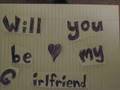 Will you
be ♥ my
Girlfriend